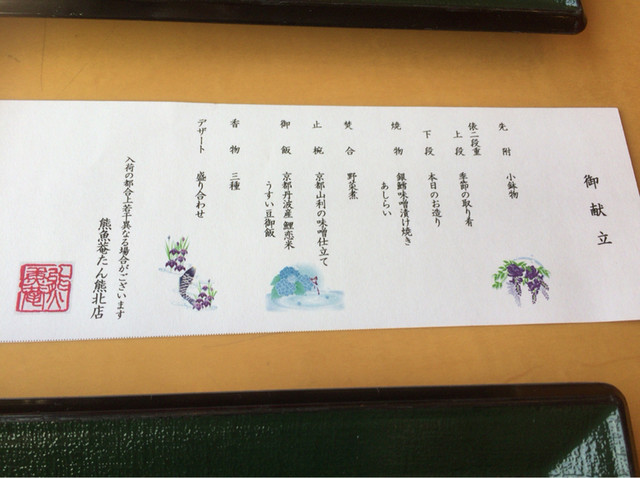 御献立
先附 小鉢物
俵二段重
上段 季節の取り肴
下段 本日のお造り
焼物 銀鱈味噌漬け焼き
あしらい
焚合 野菜煮
止椀 京都山利の味噌仕立て
御飯 京都丹波産 鯉恋米
うすい豆御飯
香物 三種
デザート 盛り合わせ
入荷の都合上若干異なる場合がございます
熊魚菴たん熊北店
熊魚菴